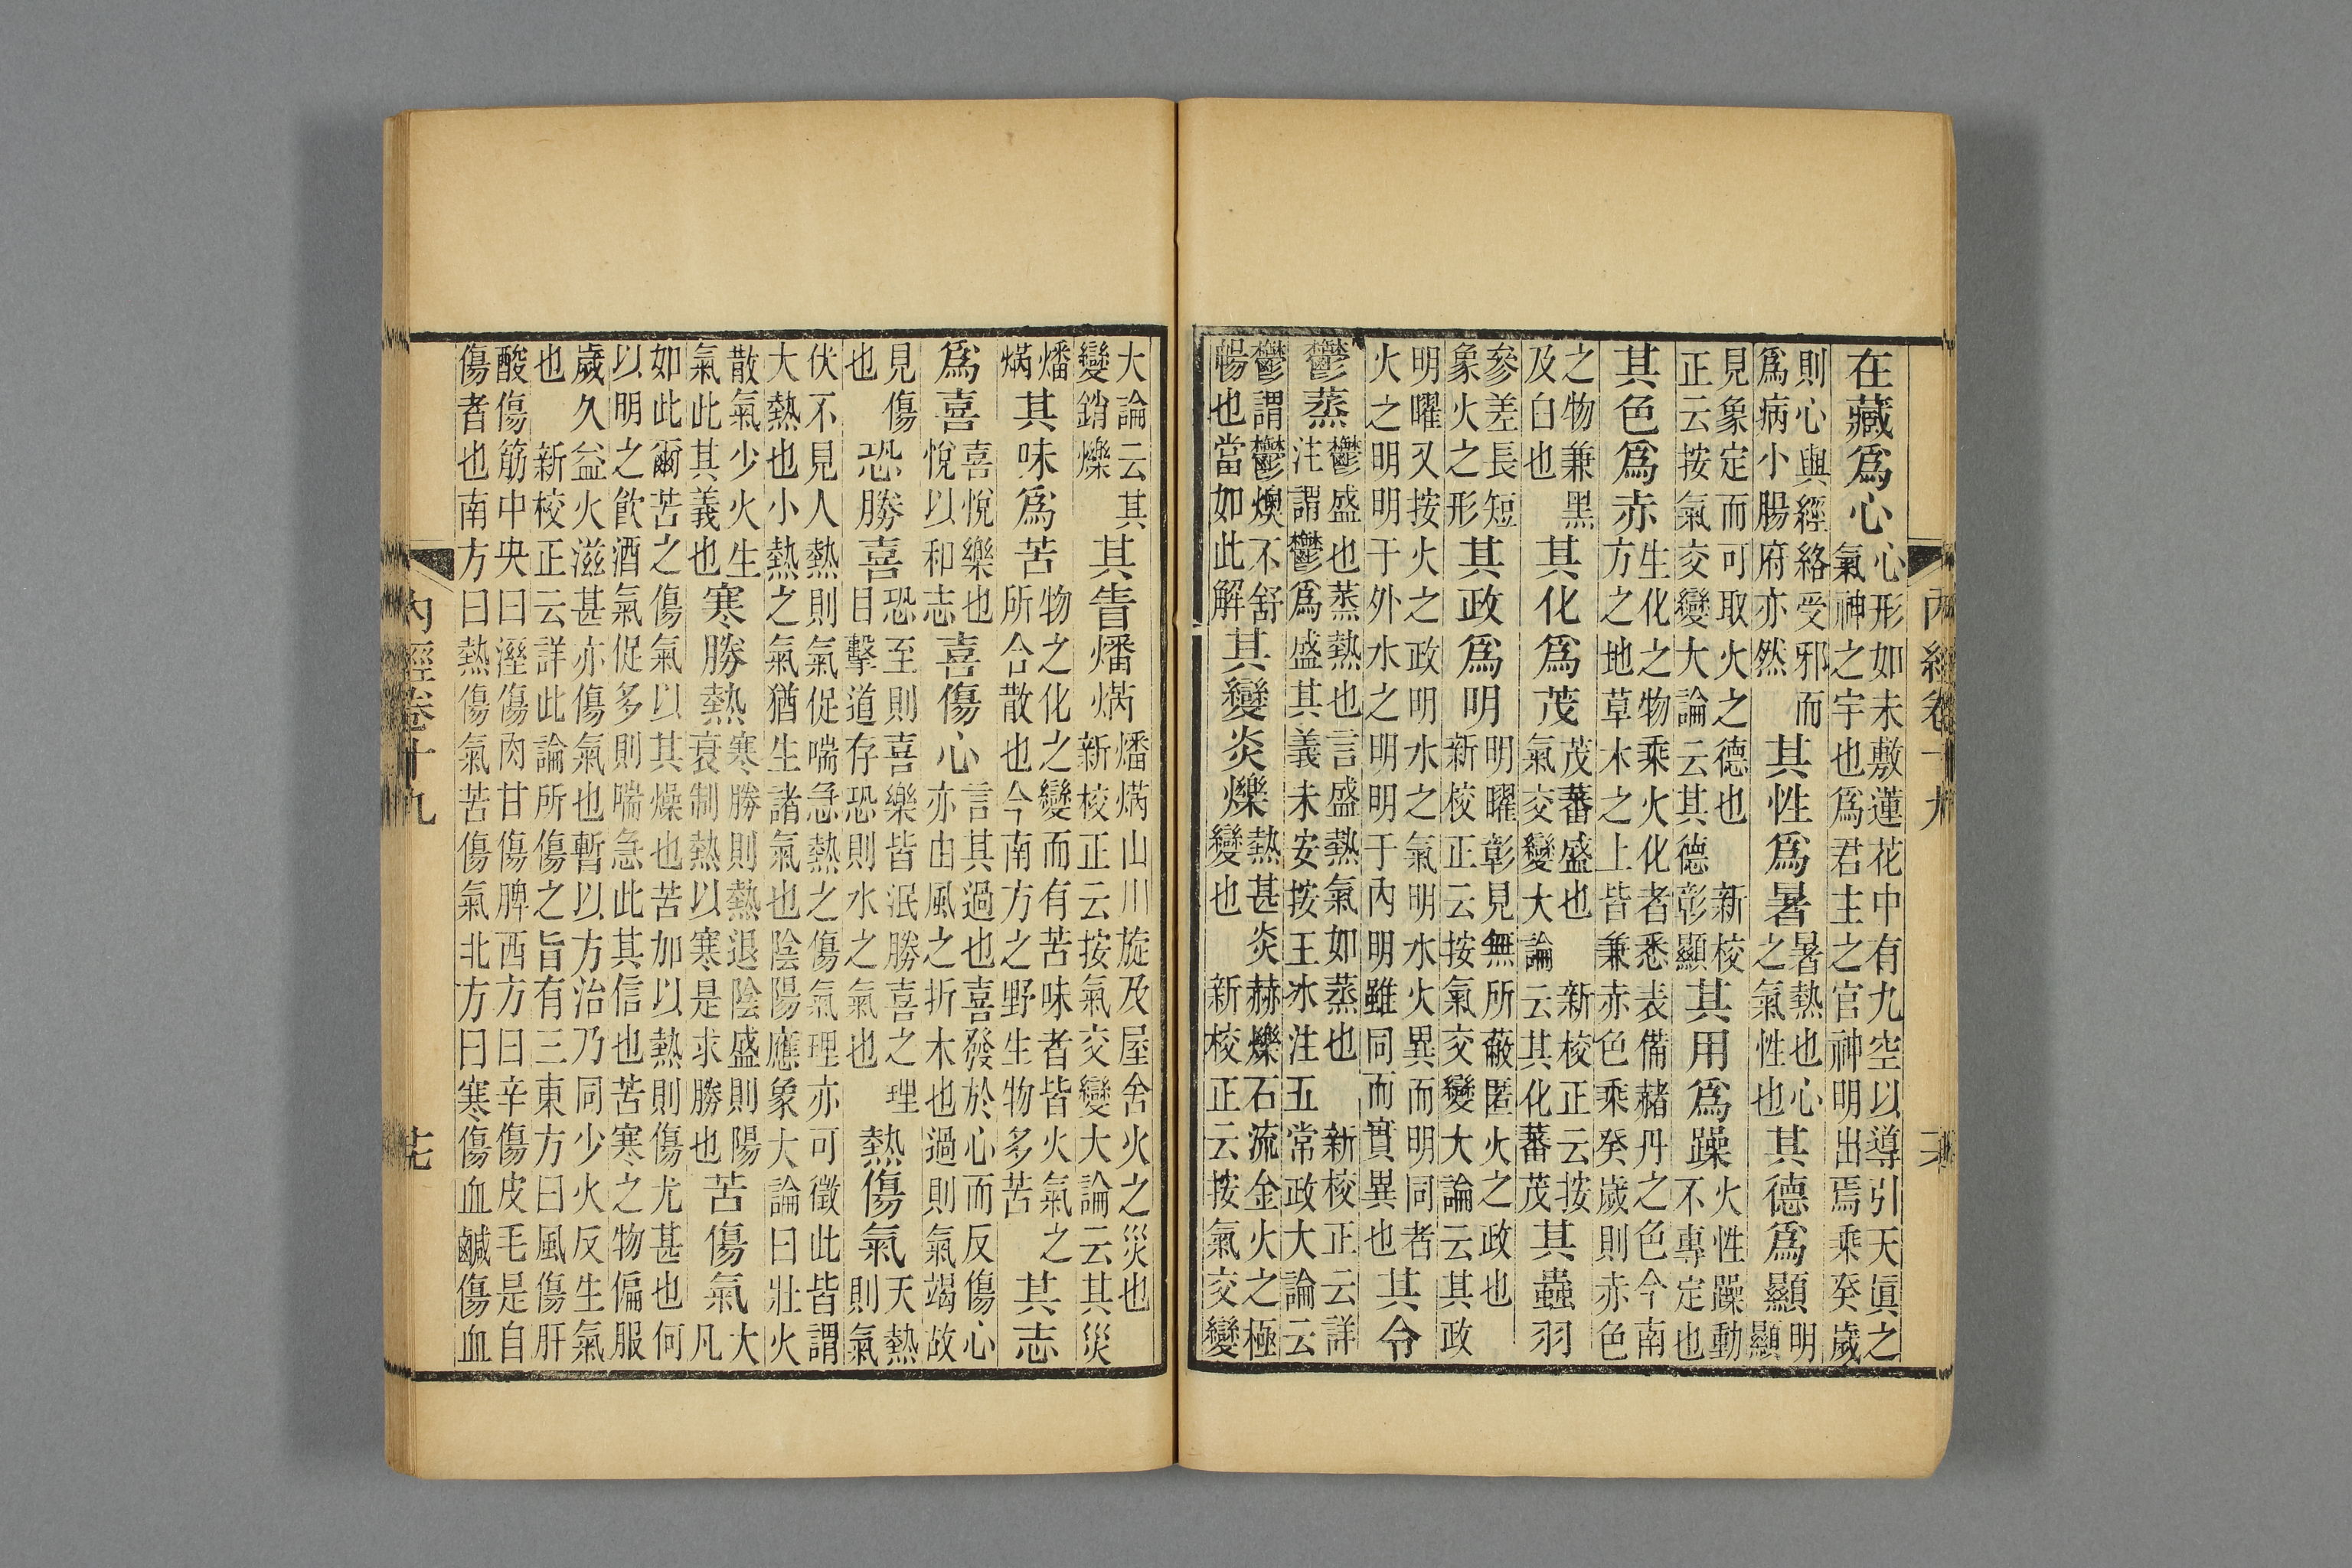 內經卷十九
在藏爲心
心形如未敷蓮花中有九空以導引天眞之
氣神之宇也爲君主之官神明出焉乘癸歲
則心與經絡受邪而
爲病小腸府亦然
其性爲暑
暑熱也心
之氣性也
其德爲顯
明
顯
見象定而可取火之德也 新校
正云按氣交變大論云其德彰顯
其用爲躁
火性躁動
不專定也
其色爲赤
生化之物乘火化者悉表備赭丹之色今南
方之地草木之上皆兼赤色乘癸歲則赤色
之物兼黑
及白也
其化爲茂
茂蕃盛也 新校正云按
氣交變大論云其化蕃茂
其蟲羽
參差長短
象火之形
其政爲明
明曜彰見無所蔽匿火之政也
新校正云按氣交變大論云其政
明曜又按火之政明水之氣明水火異而明同者
火之明明于外水之明明于內明雖同而實異也
其令
鬱蒸
鬱盛也蒸熱也言盛熱氣如蒸也 新校正云詳
注謂鬱爲盛其義未安按王冰注五常政大論云
鬱謂鬱燠不舒
暢也當如此解
其變炎爍
熱甚炎赫爍石流金火之極
變也 新校正云按氣交變
大論云其
變銷爍
其眚燔焫
燔焫山川旋及屋舍火之災也
新校正云按氣交變大論云其災
燔
焫
其味爲苦
物之化之變而有苦味者皆火氣之
所合散也今南方之野生物多苦
其志
爲喜
喜悅樂也
悅以和志
喜傷心
言其過也喜發於心而反傷心
亦由風之折木也過則氣竭故
見傷
也
恐勝喜
恐至則喜樂皆泯勝喜之理
目擊道存恐則水之氣也
熱傷氣
天熱
則氣
伏不見人熱則氣促喘急熱之傷氣理亦可徵此皆謂
大熱也小熱之氣猶生諸氣也陰陽應象大論曰壯火
散氣少火生
氣此其義也
寒勝熱
寒勝則熱退陰盛則陽
衰制熱以寒是求勝也
苦傷氣
大
凡
如此爾苦之傷氣以其燥也苦加以熱則傷尤甚也何
以明之飲酒氣促多則喘急此其信也苦寒之物偏服
歲久益火滋甚亦傷氣也暫以方治乃同少火反生氣
也 新校正云詳此論所傷之旨有三東方曰風傷肝
酸傷筋中央曰溼傷肉甘傷脾西方曰辛傷皮毛是自
傷者也南方曰熱傷氣苦傷氣北方曰寒傷血鹹傷血
內經卷十九